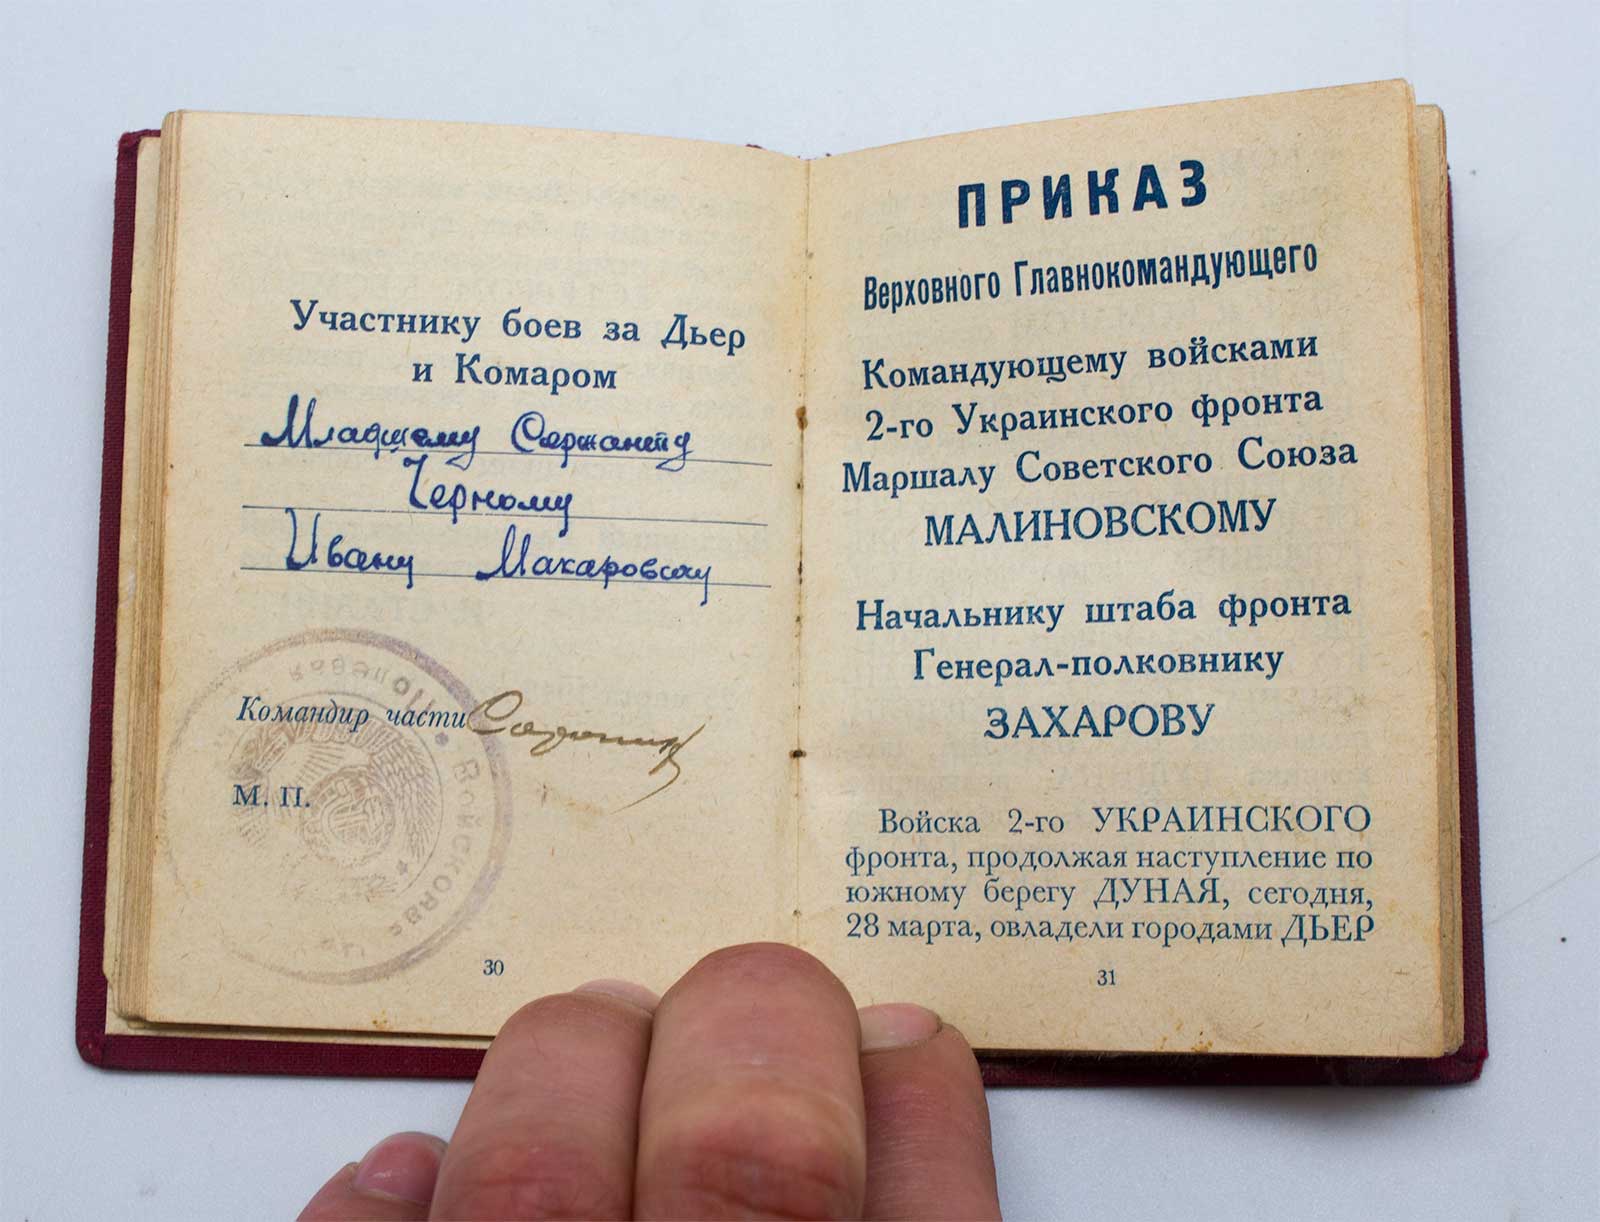 Участнику боев за Дьер
и Комаром
Младшему Сержанту
Черному
Ивану Макаровичу
Командир части
М. П.
Полевая
Войсковая
30
ПРИКАЗ
Верховного Главнокомандующего
Командующему войсками
2-го Украинского фронта
Маршалу Советского Союза
МАЛИНОВСКОМУ
Начальнику штаба фронта
Генерал-полковнику
ЗАХАРОВУ
Войска 2-го УКРАИНСКОГО
фронта, продолжая наступление по
южному берегу ДУНАЯ, сегодня,
28 марта, овладели городами ДЬЕР
31